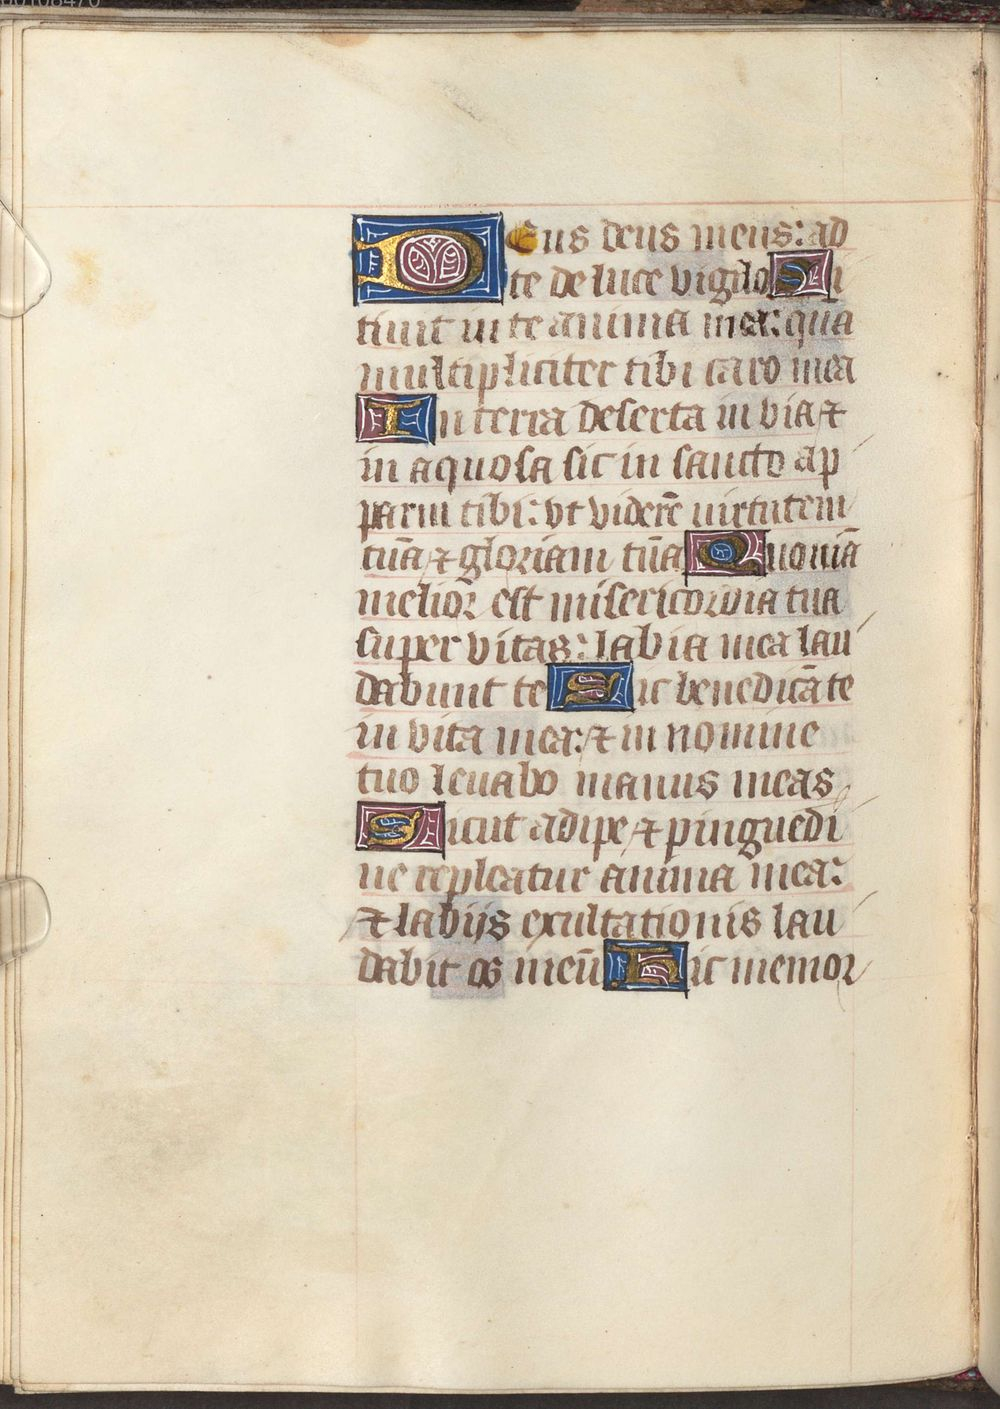 DEus deus meus: ad
te de luce vigilo Si
tiuit in te anima mea: qua
multipliciter tibi caro mea
In terra deserta in via ⁊
in aquosa sic in sancto ap
parui tibi: vt viderē uirtutem
tuā ⁊ gloriam tuā Quoniā
melior est misericordia tua
super vitas: labia mea lau
dabunt te Sic benedicā te
in vita mea: ⁊ in nomine
tuo leuabo manus meas
Sicut adipe ⁊ pinguedi
ne repleatur anima mea:
⁊ labijs exultationis lau
dabit os meū Sic memor